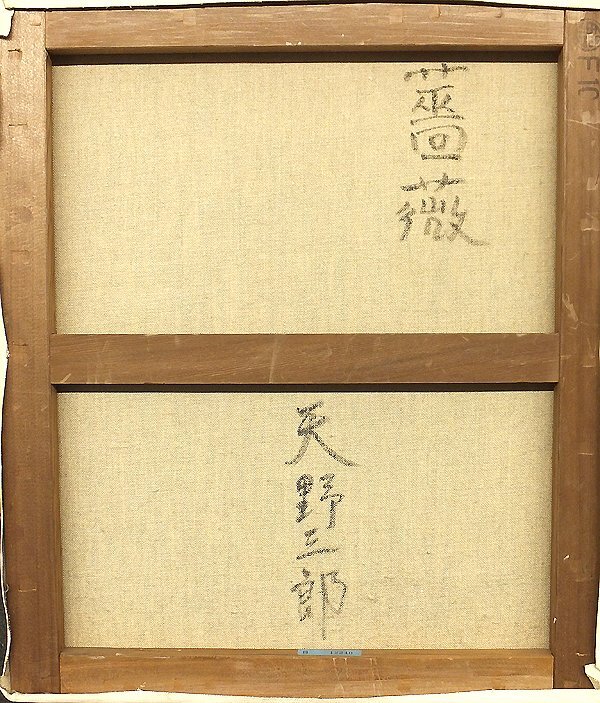 薔薇
天野三郎